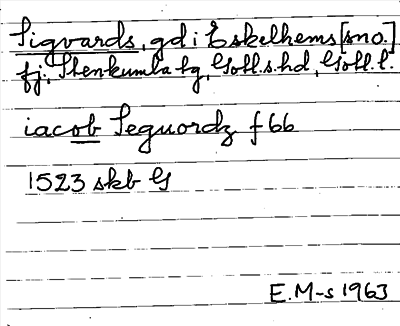 Sigvards, gd i Eskelhems [sno.]
fj, Stenkumla tg, Gotl.s.hd, Gotl.l.
iacob Seguordz f 66
1523 skb G
E.M-s 1963